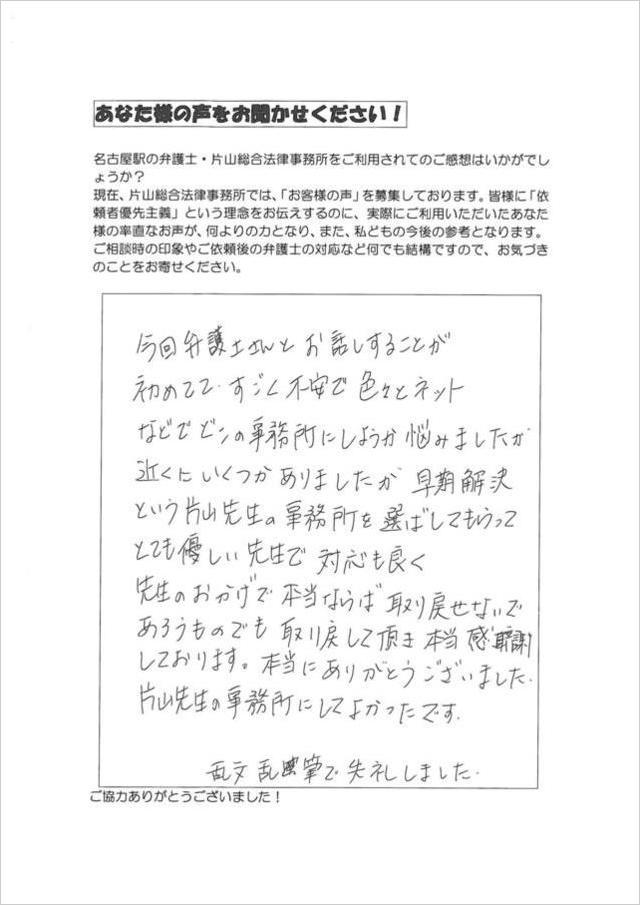 あなた様の声をお聞かせください！
名古屋駅の弁護士・片山総合法律事務所をご利用されてのご感想はいかがでし
ょうか？
現在、片山総合法律事務所では、「お客様の声」を募集しております。皆様に「依
頼者優先主義」という理念をお伝えするのに、実際にご利用いただいたあなた
様の率直なお声が、何よりの力となり、また、私どもの今後の参考となります。
ご相談時の印象やご依頼後の弁護士の対応など何でも結構ですので、お気づき
のことをお寄せください。
今回弁護士さんと お話しすることが
初めてで、すごく不安で 色々とネット
などでどンの事務所にしようか 悩みましたが
近くにいくつか ありましたが 早期解決
という片山先生の 事務所を 選ばしてもらって
とても優しい先生で 対応も良く
先生のおかげで 本当ならば 取り戻せないで
あろうものでも 取り戻して頂き 本当 感謝
しております。本当にありがとうございました.
片山先生の事務所にしてよかったです.
乱文 乱筆で 失礼しました.
ご協力ありがとうございました！